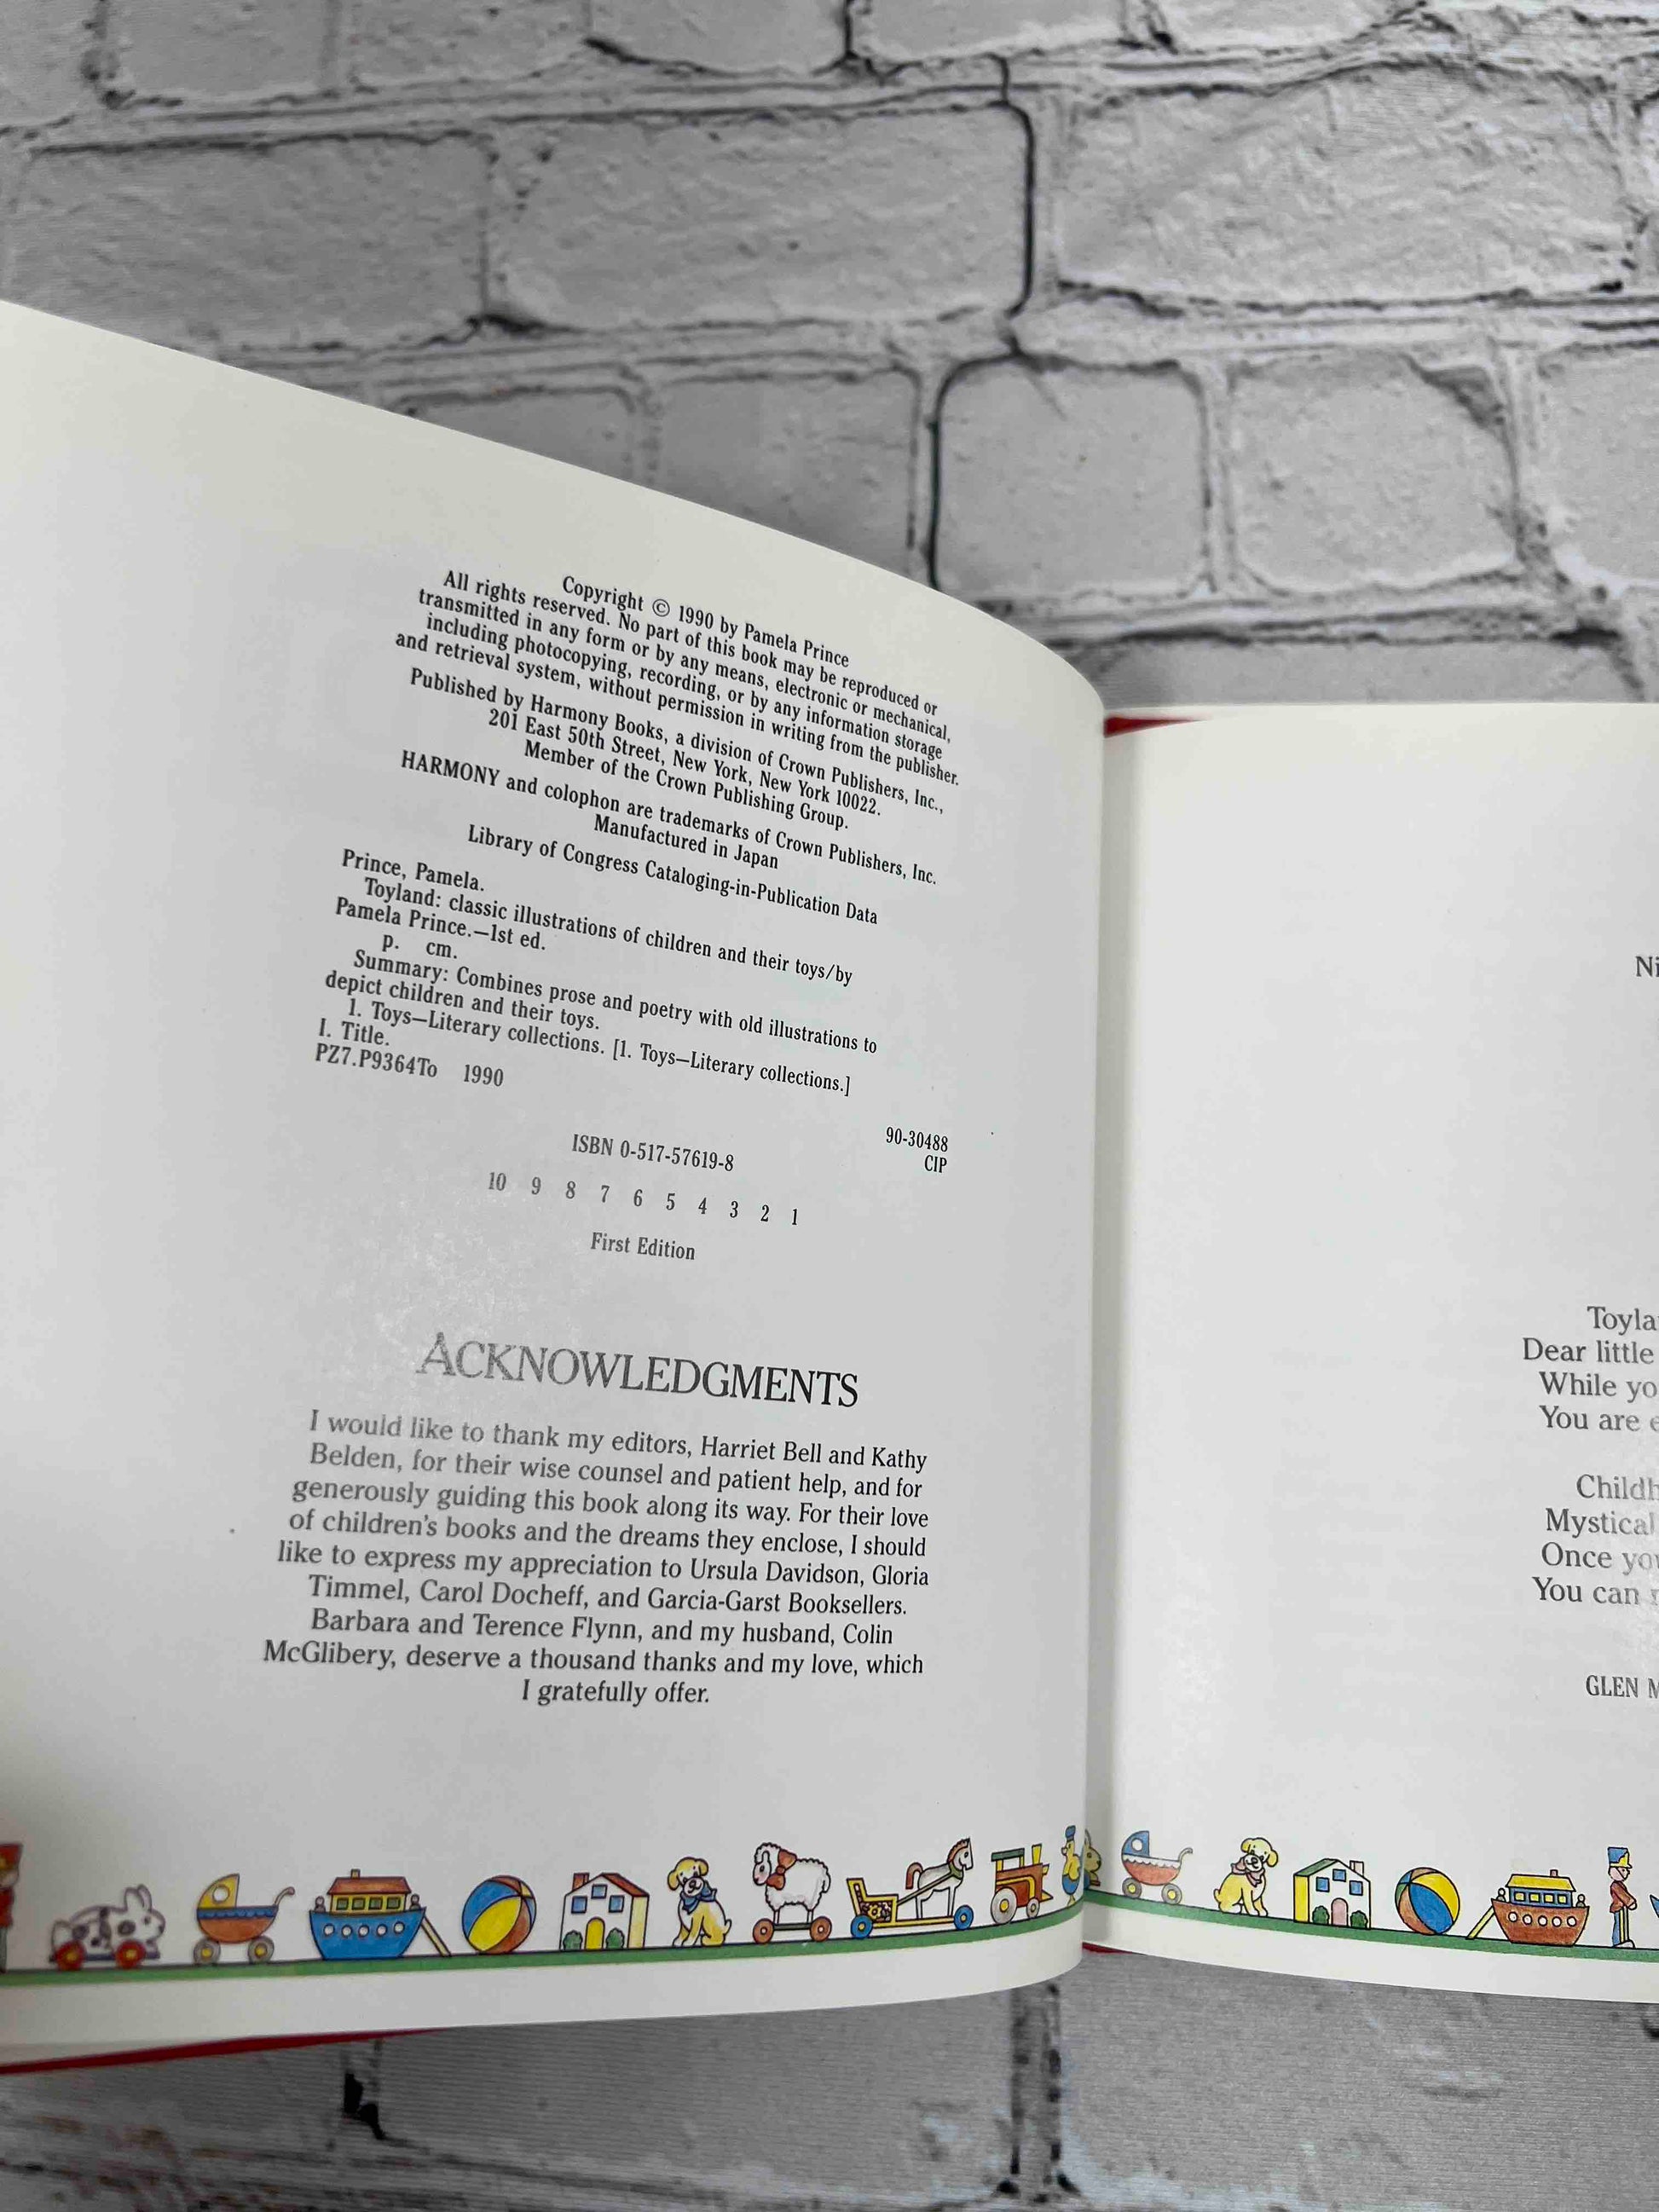 Copyright © 1990 by Pamela Prince
All rights reserved. No part of this book may be reproduced or
transmitted in any form or by any means, electronic or mechanical,
including photocopying, recording, or by any information storage
and retrieval system, without permission in writing from the publisher.
Published by Harmony Books, a division of Crown Publishers, Inc.,
201 East 50th Street, New York, New York 10022.
Member of the Crown Publishing Group.
HARMONY and colophon are trademarks of Crown Publishers, Inc.
Manufactured in Japan
Library of Congress Cataloging-in-Publication Data
Prince, Pamela.
Toyland: classic illustrations of children and their toys/by
Pamela Prince.—1st ed.
p. cm.
Summary: Combines prose and poetry with old illustrations to
depict children and their toys.
1. Toys—Literary collections. [1. Toys—Literary collections.]
I. Title.
PZ7.P9364To 1990
90-30488
CIP
ISBN 0-517-57619-8
10 9 8 7 6 5 4 3 2 1
First Edition
ACKNOWLEDGMENTS
I would like to thank my editors, Harriet Bell and Kathy
Belden, for their wise counsel and patient help, and for
generously guiding this book along its way. For their love
of children's books and the dreams they enclose, I should
like to express my appreciation to Ursula Davidson, Gloria
Timmel, Carol Docheff, and Garcia-Garst Booksellers.
Barbara and Terence Flynn, and my husband, Colin
McGlibery, deserve a thousand thanks and my love, which
I gratefully offer.
Dear little
While
You are
Mystical
Once
You can
GLEN